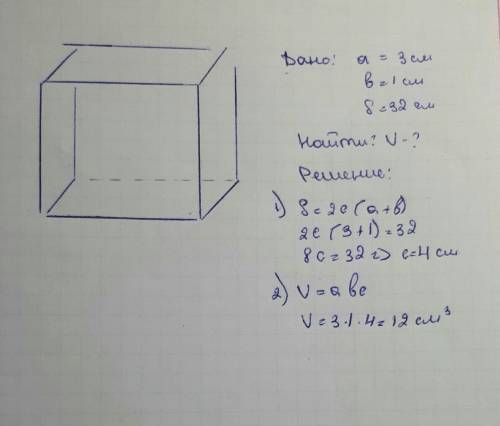 Дано: a = 3 см
в = 1 см
S = 32 см
Найти: V - ?
Решение:
1) S = 2c (a + b)
2c (3 + 1) = 32
8c = 32 => c = 4 см
2) V = a b c
V = 3 · 1 · 4 = 12 см³